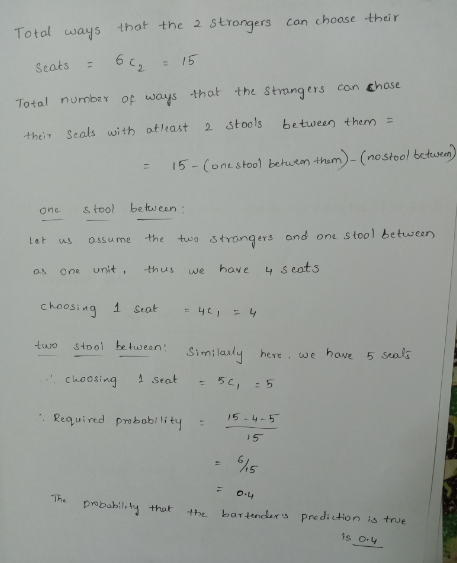 Total ways that the 2 strangers can choose their
seats = 6C₂ = 15
Total number of ways that the strangers can chose
their seals with atleast 2 stools between them =
= 15 - (one stool between them) - (no stool between)
one stool between :
let us assume the two strangers and one stool between
as one unit, thus we have 4 seats
choosing 1 seat = 4C₁ = 4
two stool between: Similarly here, we have 5 seats
∴ choosing 1 seat = 5C₁ = 5
∴ Required probability = 15-4-5 / 15
= 6/15
= 0.4
The probability that the bartender's prediction is true
is 0.4